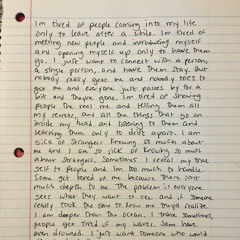 Im tired of people coming into my life
only to leave after a while. Im tired of
meeting new people and introducing myself
and opening myself up only to have them
go. I just want to connect with a person,
a single person, and have them stay. But
nobody really gets me and nobody tries to
get me and everyone just passes by for a
bit and they're gone. Im tired of showing
people the real me and telling them all
my secrets, and all the things that go on
inside my head and listening to them and
learning them only to drift apart. I am
sick of strangers knowing so much about
me and I am so sick of knowing so much
about strangers. Sometimes I reveal my true
self to people and Im too much to handle.
Some get bored of me because there isnt
much depth to me. The problem is everyone
sees what they want to see and if someone
really took the time to know me they'd realize
I am deeper than the ocean. I think sometimes,
people get tired of my waves. Some have
even drowned. I just want someone who would